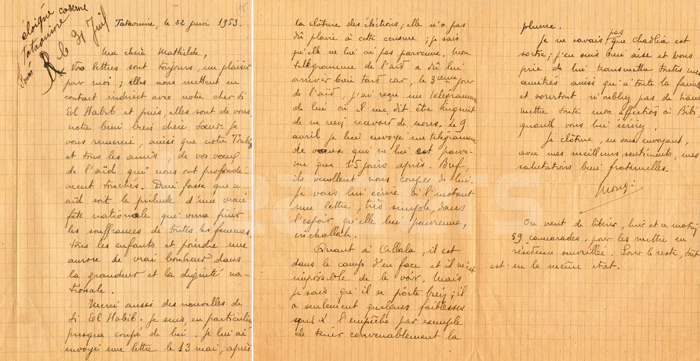 éloigné caserne
Tataouine
le 31 Juil
Tataouine, le 22 juin 1953.
Ma chère Mathilde,
Vos lettres sont toujours un plaisir
pour moi ; elles nous mettent en
contact indirect avec notre cher Si
El Habib et puis, elles sont de vous
notre bien bien chère sœur. Je
vous remercie, ainsi que notre
et tous les amis, de vos vœux
de l'aïd qui nous ont profondé-
ment touchés. Dieu fasse que cet
aïd soit le prélude d'une vraie
fête nationale qui verra finir
les souffrances de toutes les femmes,
tous les enfants et poindre une
aurore de vrai bonheur dans
la grandeur et la dignité na-
tionale.
Merci aussi des nouvelles de
Si El Habib. Je suis en particulier
presque coupé de lui. Je lui ai
envoyé une lettre le 13 mai, après
la clôture des élections ; elle n'a pas
dû plaire à cette censure ; je sais
qu'elle ne lui est pas parvenue. Mon
télégramme de l'aïd a dû lui
arriver bien tard car, le 3ème jour
de l'aïd, j'ai reçu un télégramme
de lui où il me dit être
de ne rien recevoir de nous. Le 9
avril je lui envoyé un télégramme
de vœux qui ne lui est parve-
nu que 15 jours après. Bref,
ils veulent nous couper de lui.
Je vais lui écrire à l'instant
une lettre, très simple, dans
l'espoir qu'elle lui parvienne,
inchallah.
Quant à Allala, il est
dans le camp d'en face et il m'est
impossible de le voir. Mais
je sais qu'il se porte bien ; il
a seulement quelques faiblesses
qui l'empêche par exemple
de tenir convenablement la
plume.
Je ne savais pas que Chadlia est
sortie ; j'en suis bien aise et vous
prie de lui transmettre toutes mes
amitiés ainsi qu'à toute la famille
et surtout n'oubliez pas de trans-
mettre toute mon affection à Bibi,
quand vous lui écrirez.
Je clôture, en vous envoyant,
avec mes meilleurs sentiments, mes
salutations bien fraternelles.
Mongi
On vient de libérer, hier et ce matin,
59 camarades, pour les mettre en
résidence surveillée. Pour le reste, tout
est en le même état.